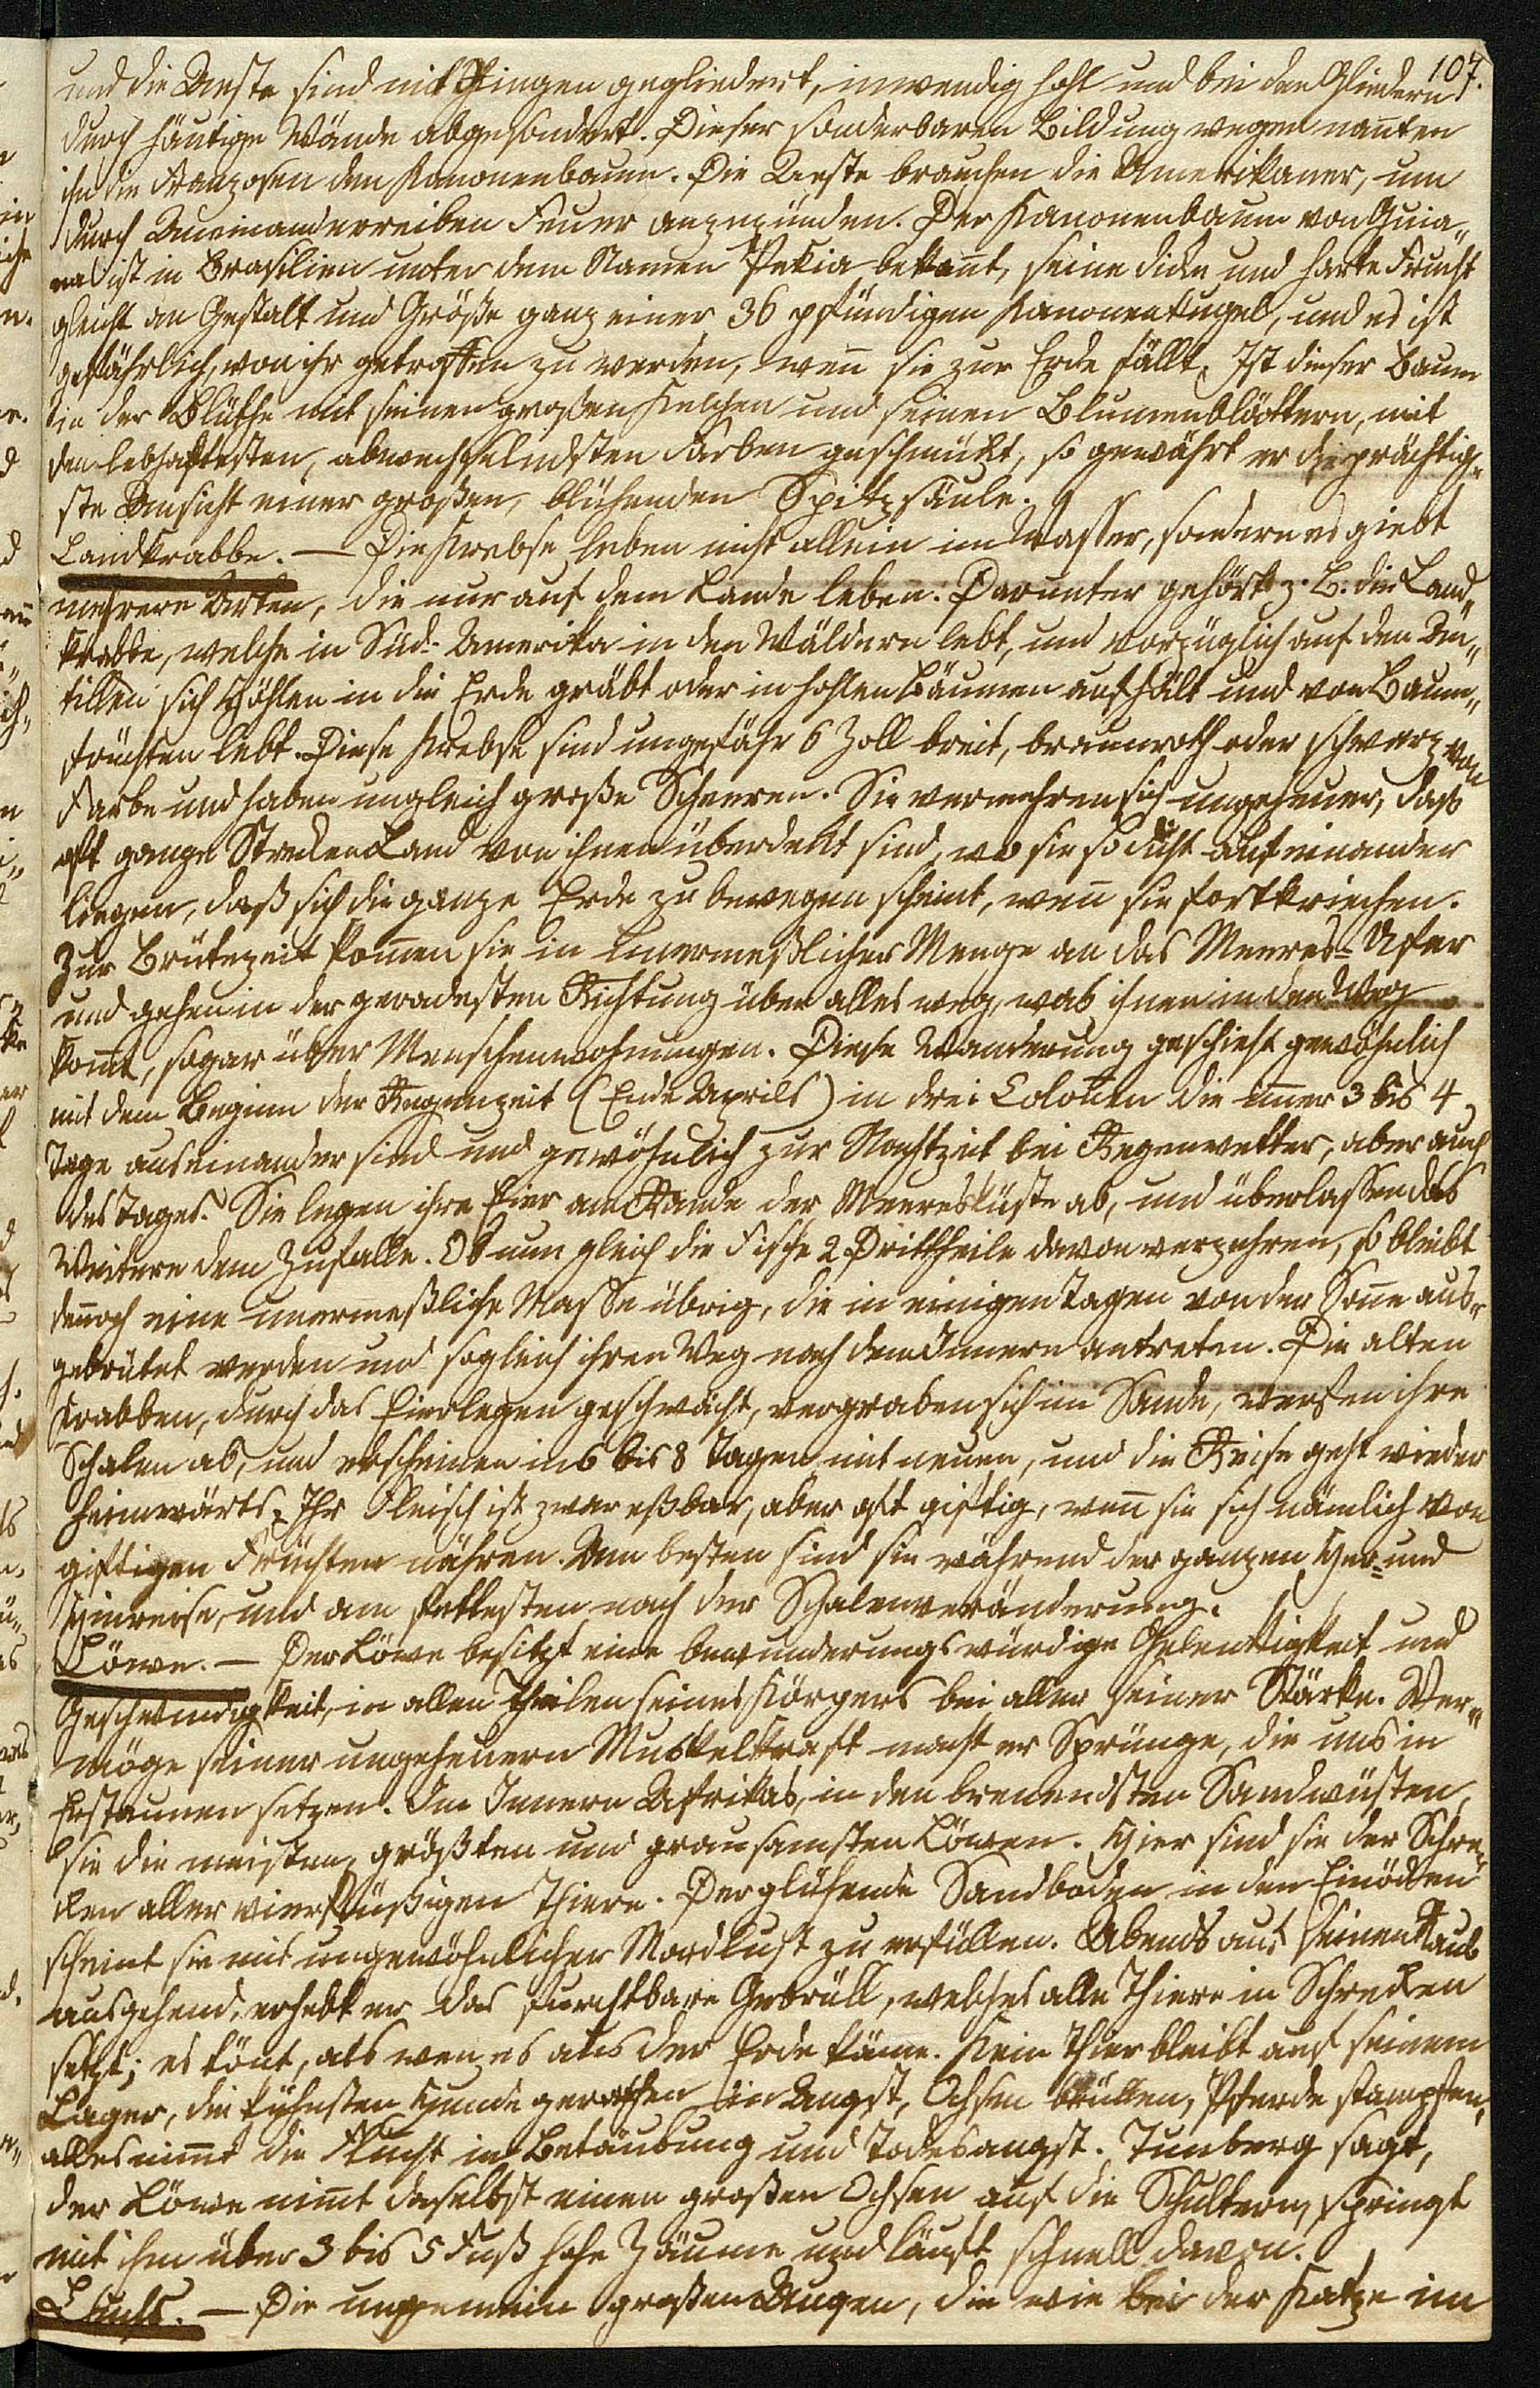 107.
und die Aeste sind mit Ringen gegliedert, inwendig hohl und bei den Gliedern
durch häutige Wände abgesondert. Dieser sonderbaren Bildung wegen nan̄ten
ihn die Franzosen den Kanonenbaum. Die Aeste brauchen die Amerikaner, um
durch Aneinanderreiben Feuer anzuzünden. Der Kanonenbaum von Guia„
na ist in Brasilien unter dem Namen Pekia bekan̄t, seine dicke und harte Frucht
gleicht an Gestalt und Größe ganz einer 36 pfündigen Kanonenkugel, und es ist
gefährlich, von ihr getroffen zu werden, wen̄ sie zur Erde fällt. Ist dieser Baum
in der Blüthe mit seinen großen Kelchen und seinen Blumenblättern, mit
den lebhaftesten, abwechselndsten Farben geschmückt, so gewährt er die prächtig„
ste Ansicht einer großen, blühenden Spitzsäule.
Landkrabbe. — Die Krebse leben nicht allein im Wasser, sondern es giebt
mehrere Arten, die nur auf dem Lande leben. Darunter gehört z. B. die Land„
krabbe, welche in Süd-Amerika in den Wäldern lebt, und vorzüglich auf den An„
tillen sich Höhlen in die Erde gräbt oder in hohlen Bäumen aufhält und von Baum„
früchten lebt. Diese Krebse sind ungefähr 6 Zoll breit, braunroth oder schwarz von
Farbe und haben ungleich große Scheeren. Sie vermehren sich ungeheuer, daß
oft ganze Strecken Land von ihnen überdeckt sind, wo sie so dicht aufeinander
liegen, daß sich die ganze Erde zu bewegen scheint, wen̄ sie fortkriechen.
Zur Brütezeit kom̄en sie in unermeßlicher Menge an das Meeres-Ufer
und gehen in der geradesten Richtung über alles weg, was ihnen in den Weg
kom̄t, sogar über Menschenwohnungen. Diese Wanderung geschieht gewöhnlich
mit dem Beginn der Regenzeit (Ende Aprils) in drei Colonen die im̄er 3 bis 4
Tage auseinander sind und gewöhnlich zur Nachtzeit bei Regenwetter, aber auch
des Tages. Sie legen ihre Eier am Rande der Meeresküste ab, und überlassen das
Weitere dem Zufalle. Ob nun gleich die Fische 2 Drittheile davon verzehren, so bleibt
den̄och eine unermeßliche Masse übrig, die in einigen Tagen von der Son̄e aus„
gebrütet werden und sogleich ihren Weg nach dem Innern antreten. Die alten
Krabben, durch das Eierlegen geschwächt, vergraben sich im Sande, werfen ihre
Schalen ab, und erscheinen in 6 bis 8 Tagen mit neuen, und die Reise geht wieder
heimwärts. Ihr Fleisch ist zwar eßbar, aber oft giftig, wen̄ sie sich nämlich von
giftigen Früchten nähren. Am besten sind sie während der ganzen Her- und
Hinreise, und am fettesten nach der Schalenveränderung.
Löwe. — Der Löwe besitzt eine bewunderungswürdige Gelenkigkeit und
Geschwindigkeit, in allen Theilen seines Körpers bei aller seiner Stärke. Ver„
möge seiner ungeheuern Muskelkraft macht er Sprünge, die uns in
Erstaunen setzen. Im Innern Afrikas, in den bren̄endsten Sandwüsten,
sie die meisten, größten und grausamsten Löwen. Hier sind sie der Schre„
cken aller vierfüßigen Thiere. Der glühende Sandboden in den Einöden
scheint sie mit ungewöhnlicher Mordlust zu erfüllen. Abends auf seinen Raub
ausgehend, erhebt er das furchtbare Gebrüll, welches alle Thiere in Schrecken
setzt; es tönt, als wen̄ es aus der Erde käme. Kein Thier bleibt auf seinem
Lager, die kühnsten Hunde gerathen in Angst, Ochsen brüllen, Pferde stampfen,
alles nim̄t die Flucht in Betäubung und Todesangst. Tunberg sagt,
der Löwe nim̄t daselbst einen großen Ochsen auf die Schultern, springt
mit ihm über 3 bis 5 Fuß hohe Zäune und läuft schnell davon.
Luchs. — Die ungemein großen Augen, die wie bei der Katze im